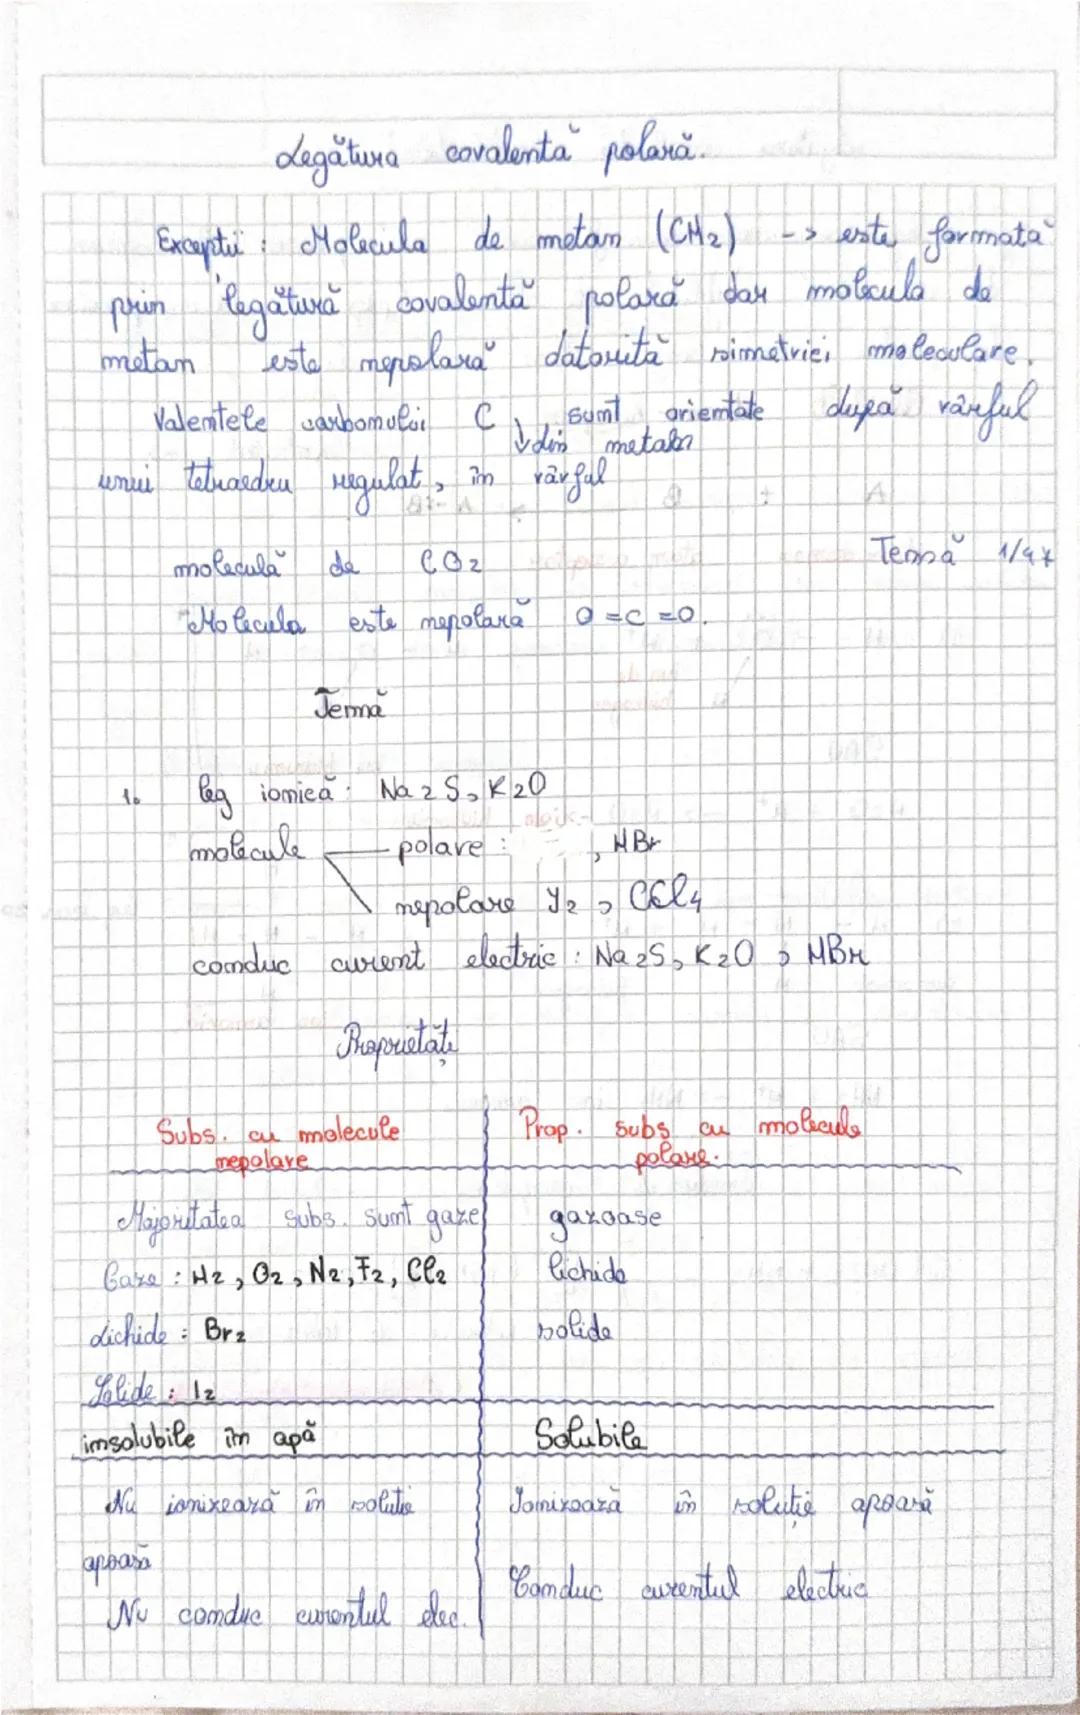 Legătura covalentă polară.
Excepții : Molecula de metan (CH2) -> este formată
prin legătură covalentă polară dar molecula de
metan este nepolară datorită simetriei moleculare.
Valentele carbonului C ↓ din metan sunt orientate după vârful
unui tetraedru regulat, în vârful
moleculă de CO2
Temă 1/47
Molecula este nepolară O=C=O.
Temă
1. leg ionică : Na2S, K2O
molecule polare : , HBr
nepolare I2, CCl4
conduc curent electric : Na2S, K2O, HBr
Proprietăți
Subs. cu molecule
nepolare
Prop. subs cu molecule
polare.
Majoritatea subs. sunt gaze
gazoase
Gaze : H2, O2, N2, F2, Cl2
lichide
Lichide : Br2
solide
Solide : I2
insolubile în apă
Solubile
Nu ionizează în soluție
apoasă
Ionizează în soluție apoasă
Nu conduc curentul elec.
Conduc curentul electric